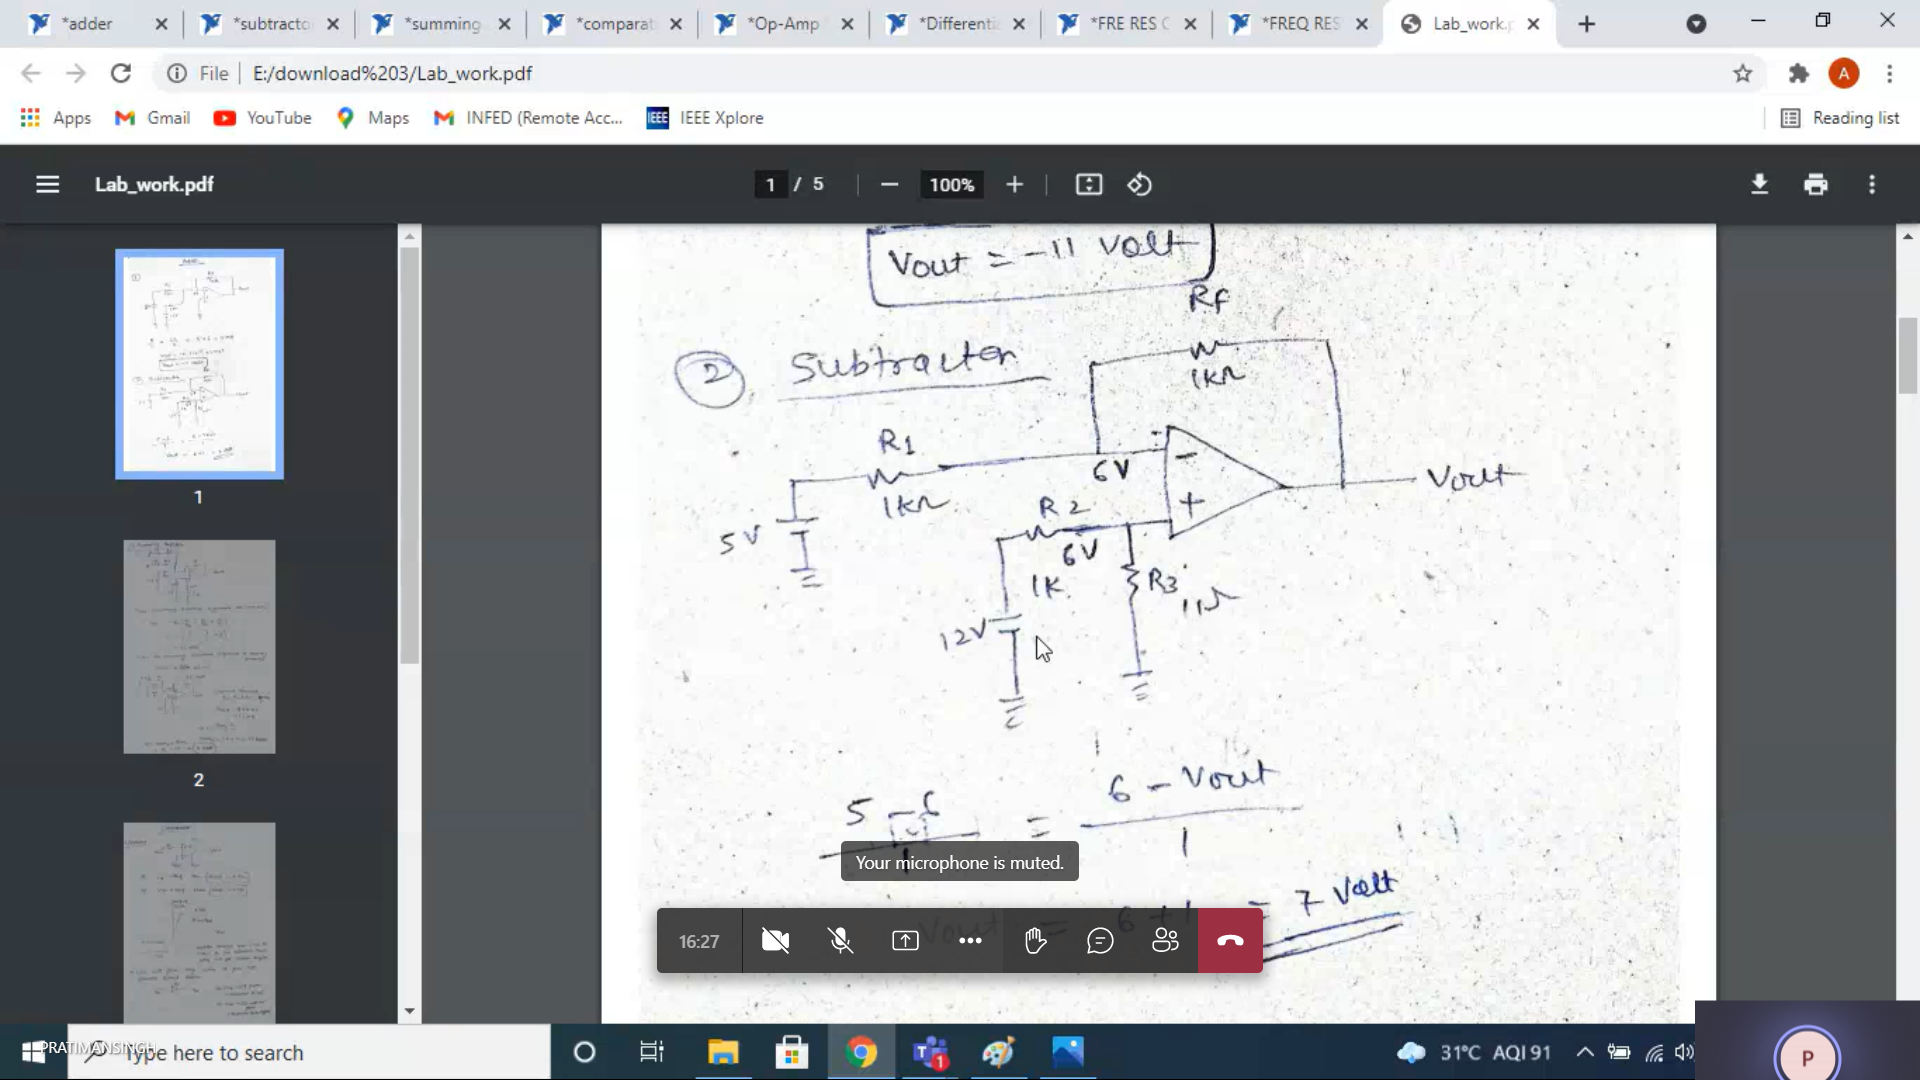 *adder
*subtracto
*summing
*comparat
*Op-Amp
*Differenti
*FRE RES C
*FREQ RES
Lab_work.p
File
E:/download%203/Lab_work.pdf
A
Apps
Gmail
YouTube
Maps
INFED (Remote Acc...
IEEE
IEEE Xplore
Reading list
Lab_work.pdf
1 / 5
100%
1
2
Vout = -11 Volt
Rf
2 Subtractor
1kΩ
R1
1kΩ
6V
-
+
Vout
R2
5V
6V
1K
R3
12V
5 - 6 = 6 - Vout
1
1
Your microphone is muted.
Vout = 6 + 1 = 7 Volt
16:27
PRATIMANSINGH
Type here to search
1
31°C AQI 91
P